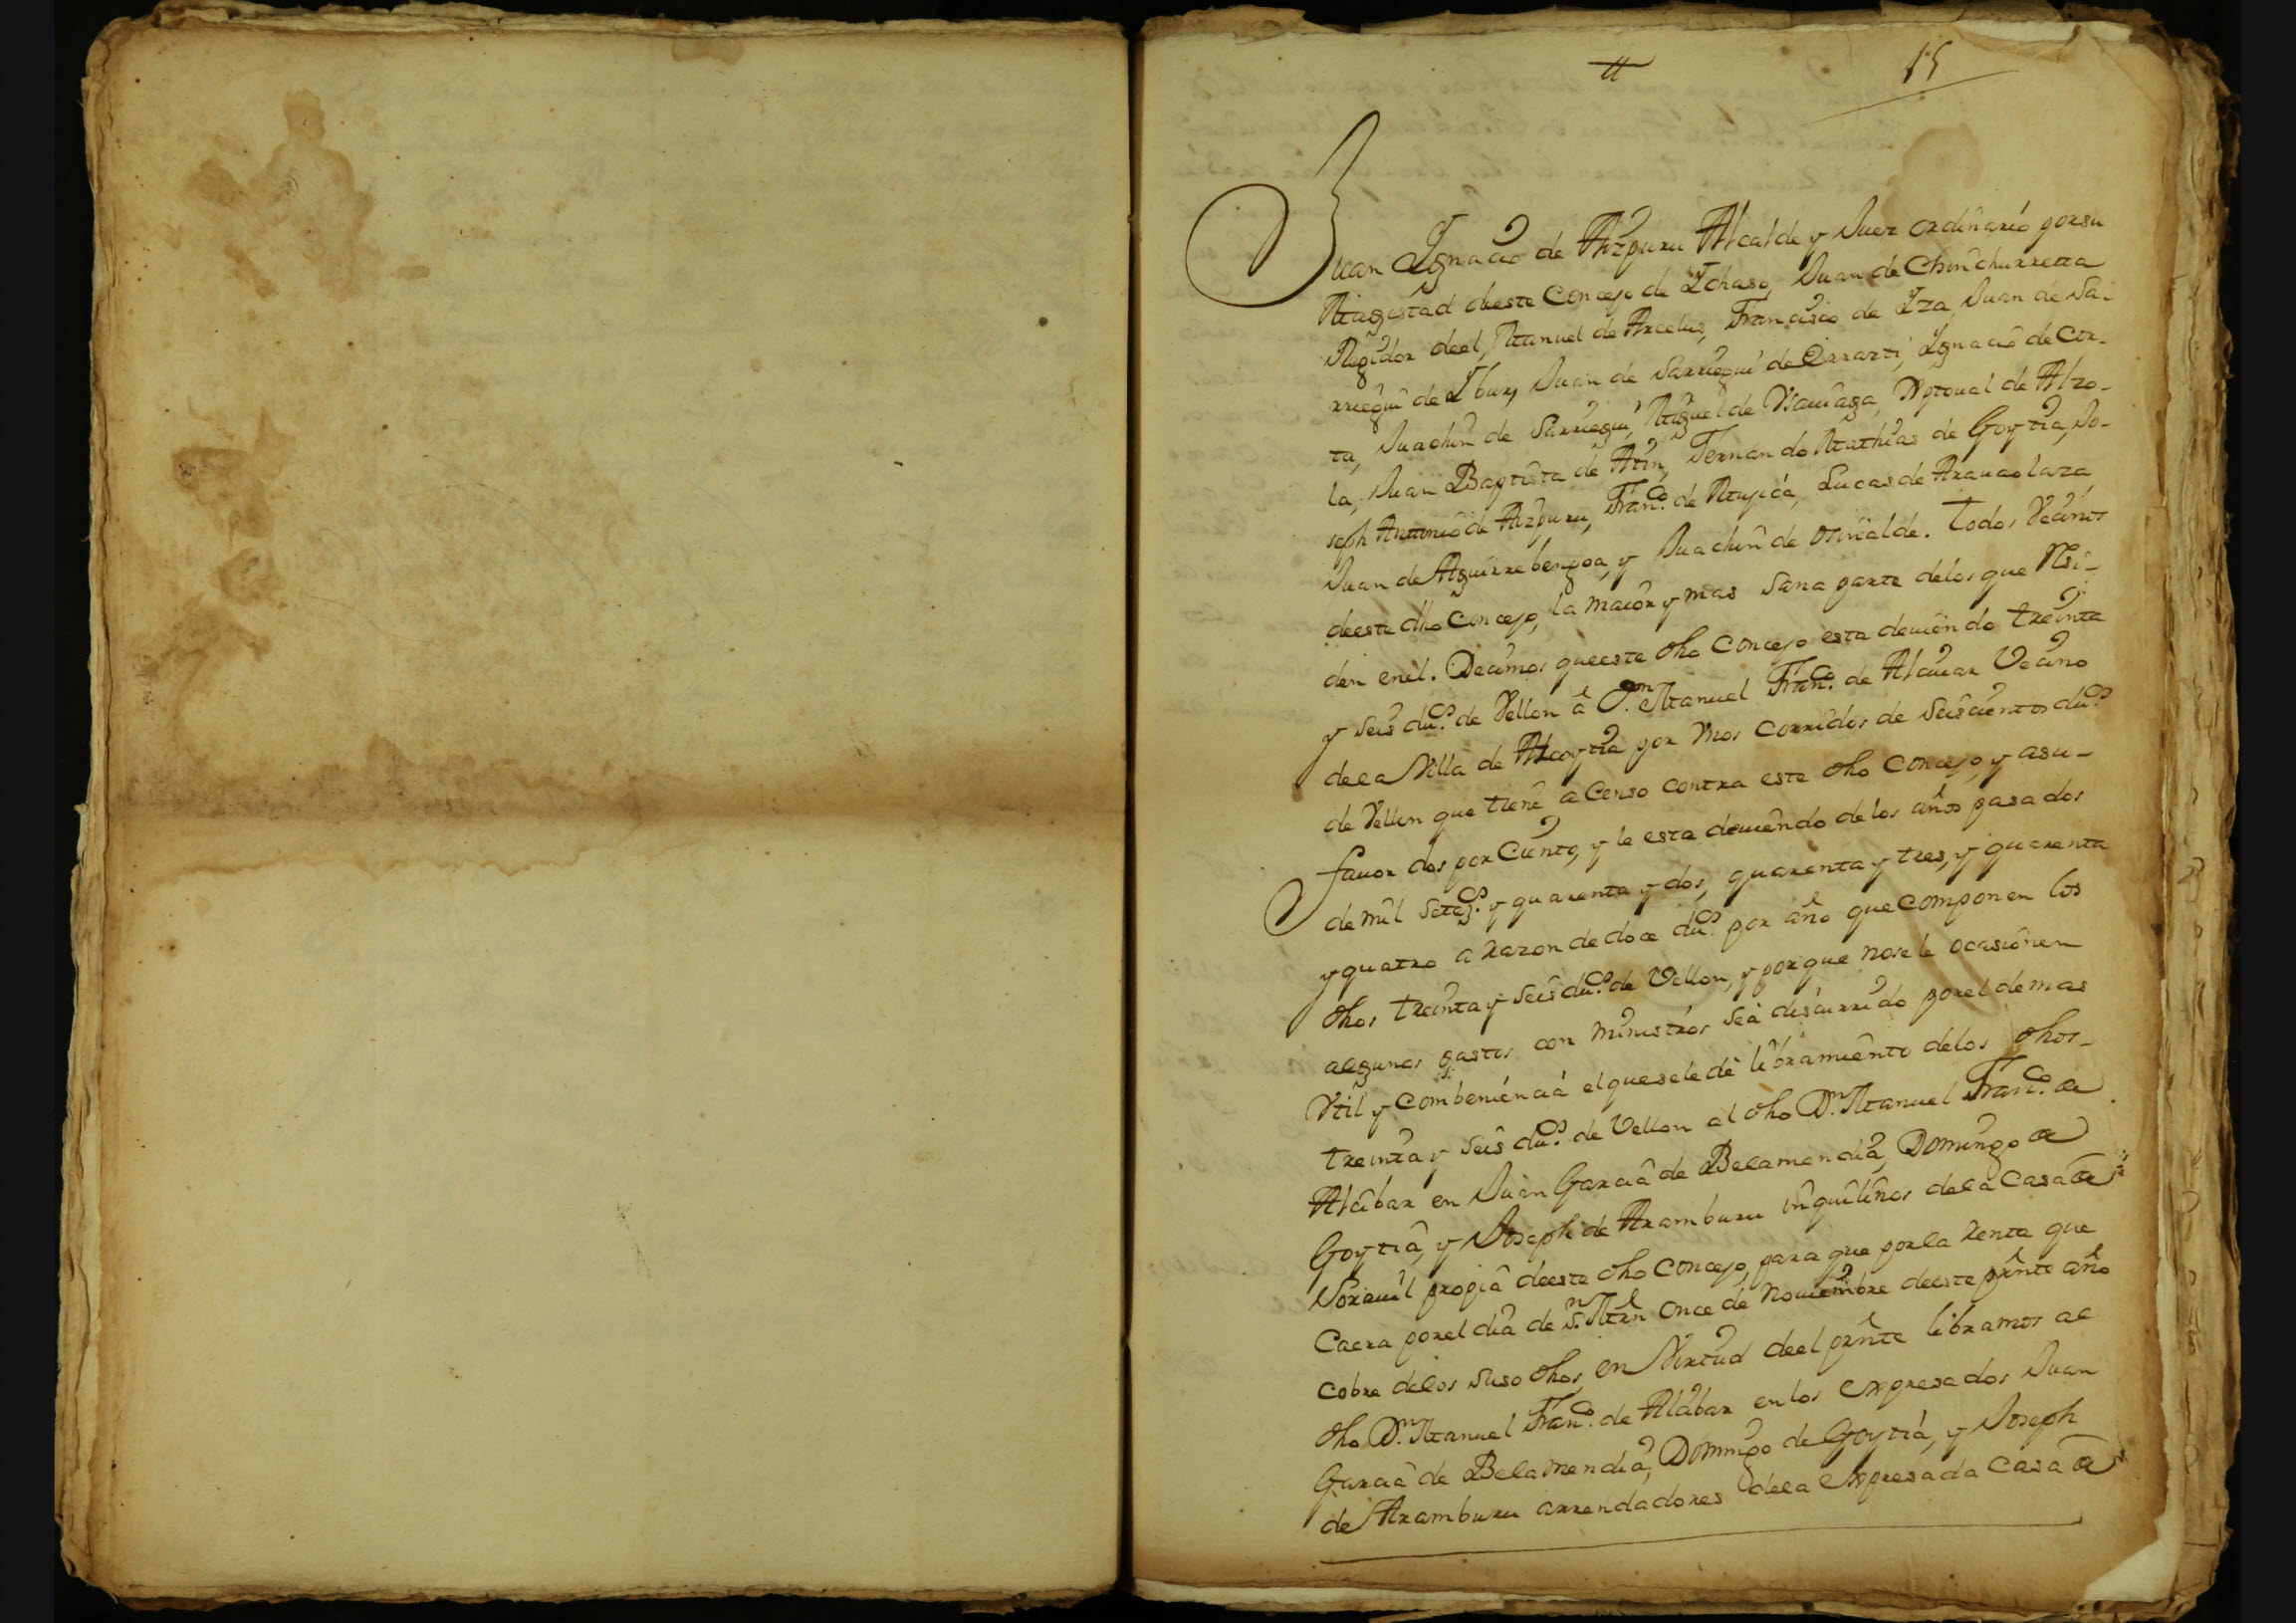 15
Juan Ygnacio de Aizpuru Alcalde y Juez ordinario por su
Magistad deeste Concejo de Ychaso, Juan de Chinchurretta
Regidor deel, Manuel de Arcelus, Francisco de Yza, Juan de Sa-
rriegui de Ybur, Juan de Sarriegui de Errarti, Ygnacio de Cor-
ta, Juachin de Sarriegui, Miguel de Viauiaga, Xptoual de Alzo-
la, Juan Baptista de Atin, Fernando Mathias de Goytia, Jo-
seph Antonio de Aizpuru, Franco. de Mujica, Lucas de Araucolaza,
Juan de Aguirrebengoa, y Juachin de Osinalde. Todos Vecinos
deeste dho Concejo, la maior y mas sana parte delos que Resi-
den enel. Decimos queeste dho Concejo esta deuiendo treinta
y seis dus. de Vellon á Dn. Manuel Franco. de Alciuar Vecino
dela Villa de Azcoytia por Rros corridos de seiscientos dus.
de Vellon que tiene a Censo contra este dho Concejo, y asu-
fauor dos por Ciento, y le esta deuiendo delos años pasados
de mil setezs. y quarenta y dos, quarenta y tres, y quarenta
y quatro a razon de doce dus. por año que componen los
dhos treinta y seis dus. de Vellon, y porque nosele ocasionen
algunos gastos con ministros sea discurrido porel demas
Vtil y combeniencia elquesele dé libramiento delos dhos-
treinta y seis dus. de Vellon al dho Dn. Manuel Franco. de
Alcibar en Juan Garcia de Belamendia, Domingo de
Goytia, y Joseph de Aramburu inquilinos dela Casa de
Sorauil propia deeste dho Concejo, para que porla renta que
Caera porel dia de Sn. Mrn once de Nouiembre deeste prnte año
cobre delos suso dhos, en Virtud deel prnte libramos al
dho Dn. Manuel Franco. de Alcibar enlos expresados Juan
Garcia de Belamendia, Domingo de Goytia, y Joseph
de Aramburu arrendadores dela expresada Casa de